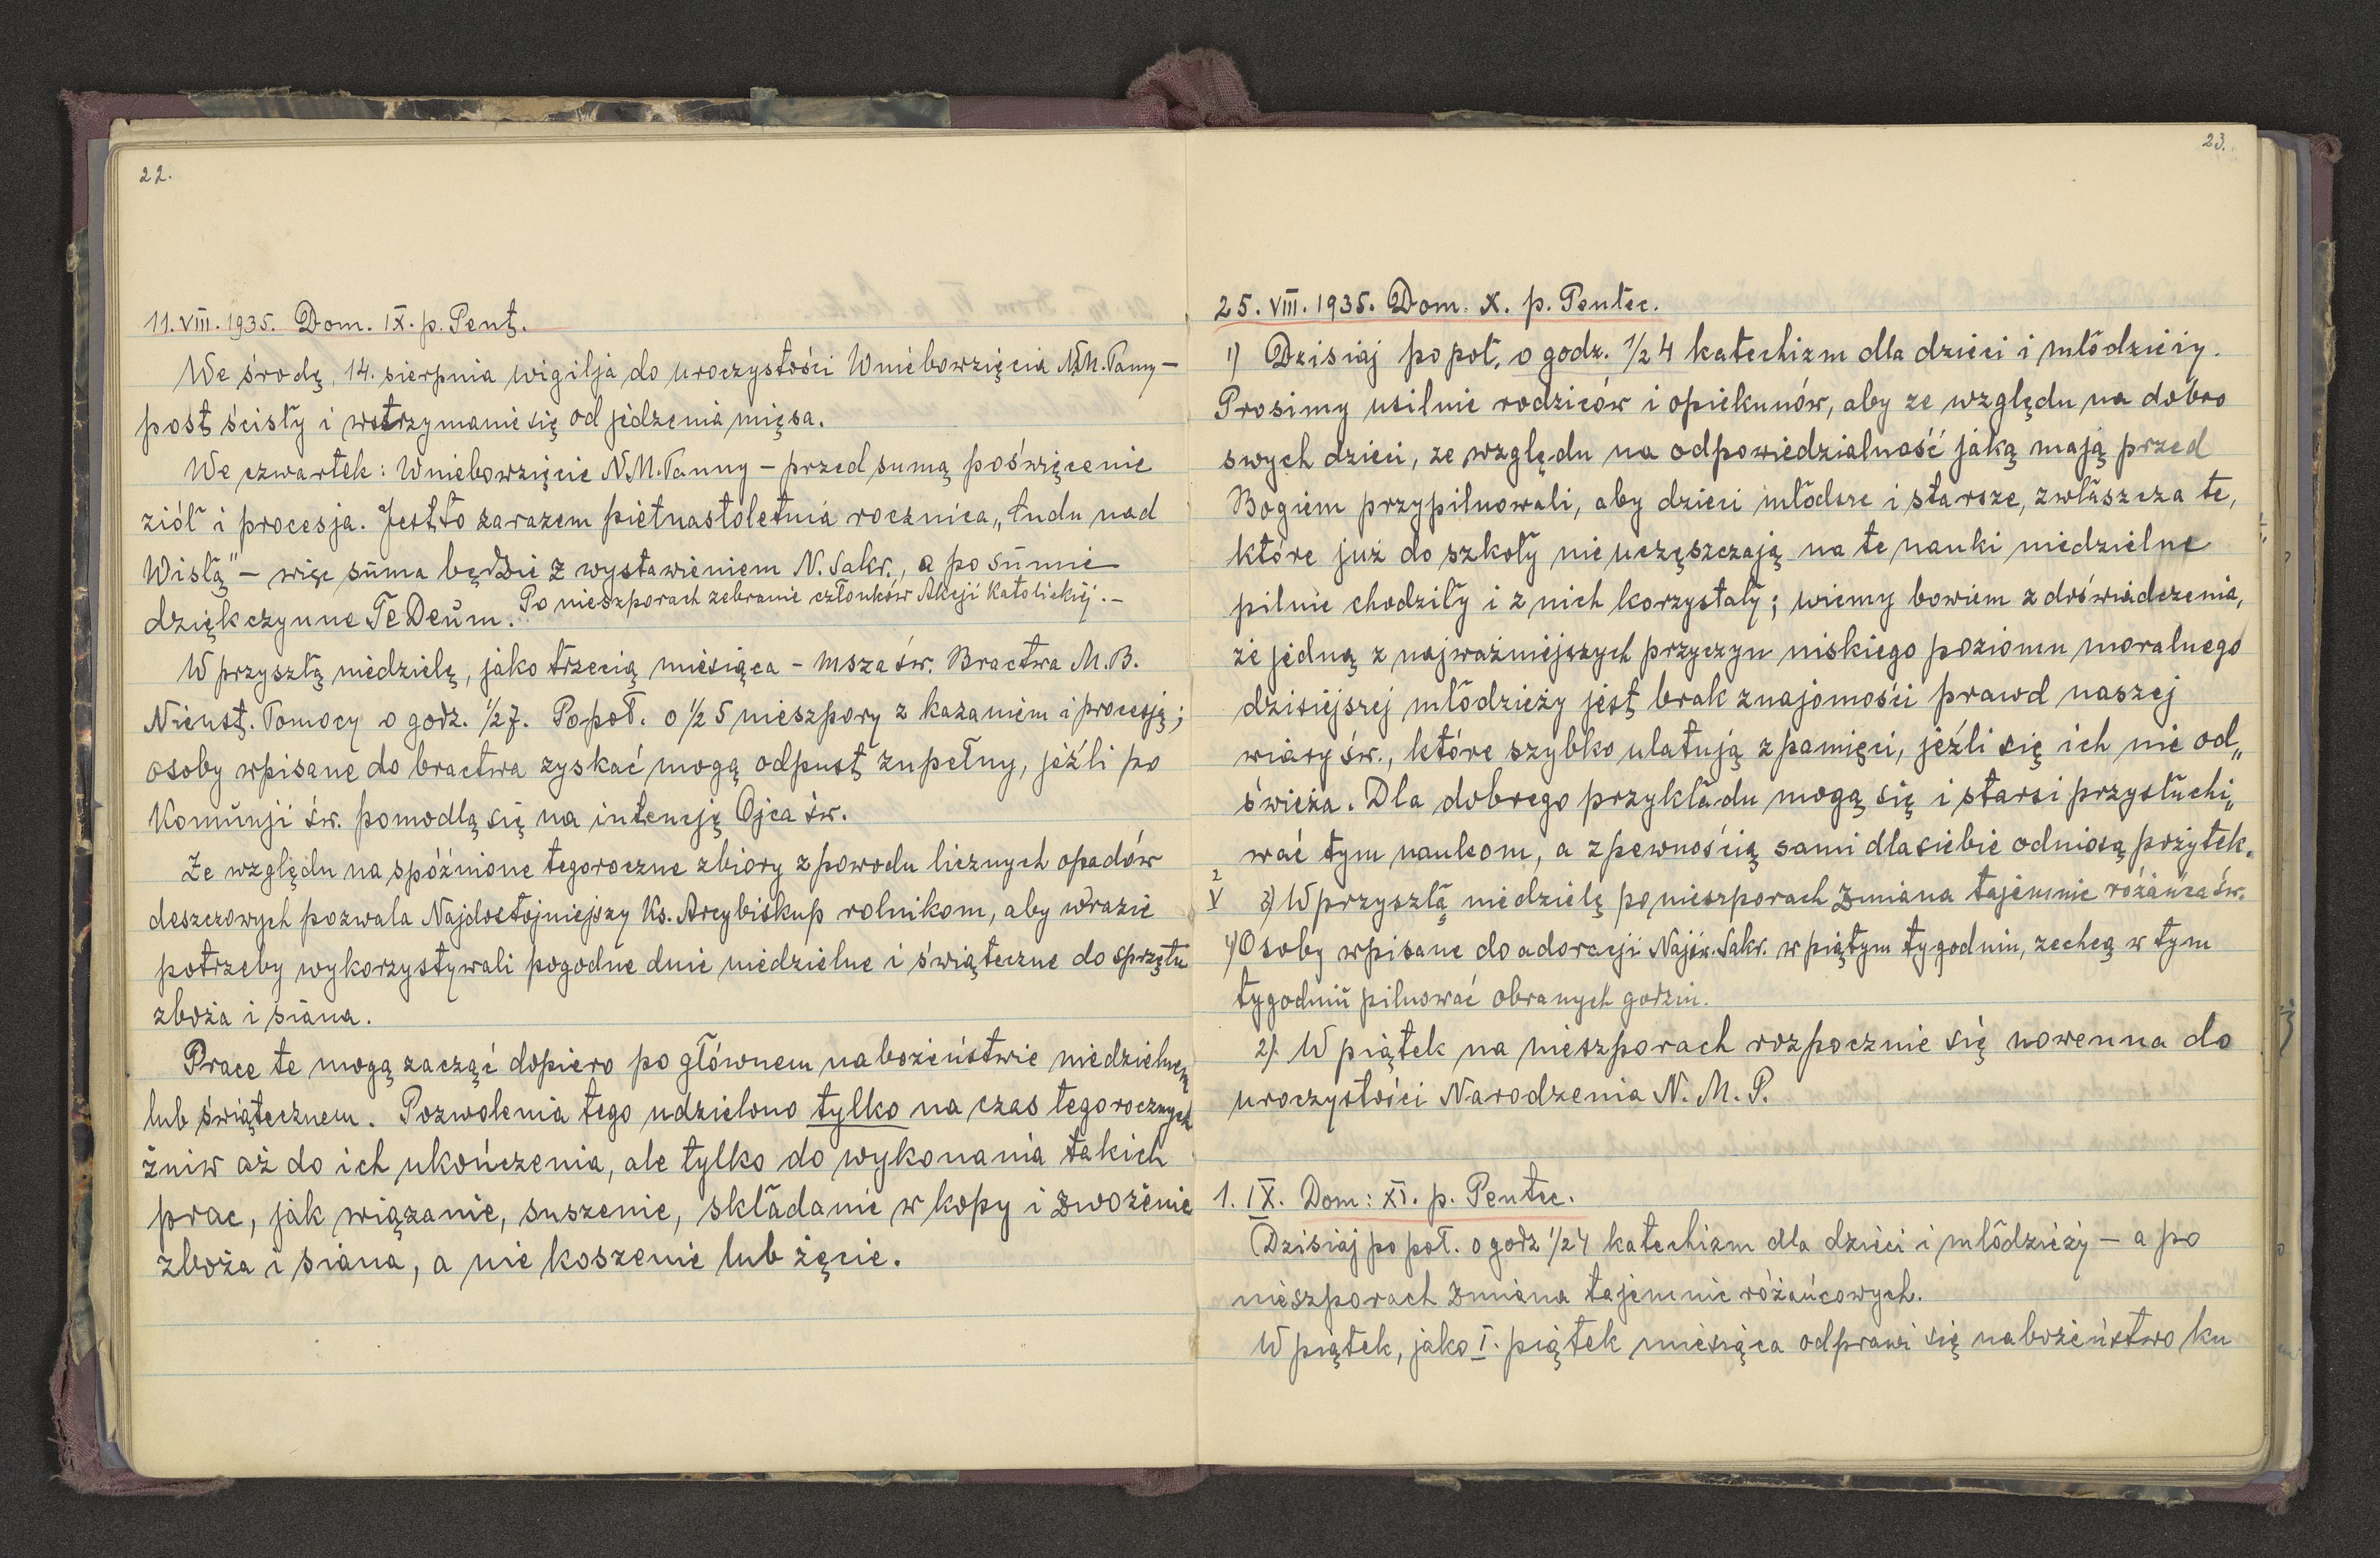 22.
11. VIII. 1935. Dom. IX. p. Pent.
We środę, 14. sierpnia wigilja do uroczystości Wniebowzięcia N.M. Panny –
post ścisły i wstrzymanie się od jedzenia mięsa.
We czwartek: Wniebowzięcie N.M. Panny – przed sumą poświęcenie
ziół i procesja. Jest to zarazem piętnastoletnia rocznica „Cudu nad
Wisłą" – więc suma będzie z wystawieniem N. Sakr., a po sumie
dziękczynne Te Deum. Po nieszporach zebranie członków Akcji Katolickiej. –
W przyszłą niedzielę, jako trzecią miesiąca – msza św. Bractwa M.B.
Nieust. Pomocy o godz. 1/2 7. Popoł. o 1/2 5 nieszpory z kazaniem i procesją;
osoby wpisane do bractwa zyskać mogą odpust zupełny, jeźli po
Komunji św. pomodlą się na intencję Ojca św.
Ze względu na spóźnione tegoroczne zbiory z powodu licznych opadów
deszczowych pozwala Najdostojniejszy Ks. Arcybiskup rolnikom, aby w razie
potrzeby wykorzystywali pogodne dnie niedzielne i świąteczne do sprzętu
zboża i siana.
Prace te mogą zacząć dopiero po głównem nabożeństwie niedzielnem
lub świątecznem. Pozwolenia tego udzielono tylko na czas tegorocznych
żniw aż do ich ukończenia, ale tylko do wykonania takich
prac, jak wiązanie, suszenie, składanie w kopy i zwożenie
zboża i siana, a nie koszenie lub żęcie.
23.
25. VIII. 1935. Dom. X. p. Pentec.
1) Dzisiaj po poł. o godz. 1/2 4 katechizm dla dzieci i młodzieży.
Prosimy usilnie rodziców i opiekunów, aby ze względu na dobro
swych dzieci, ze względu na odpowiedzialność jaką mają przed
Bogiem przypilnowali, aby dzieci młodsze i starsze, zwłaszcza te,
które już do szkoły nie uczęszczają na te nauki niedzielne
pilnie chodziły i z nich korzystały; wiemy bowiem z doświadczenia,
że jedną z najważniejszych przyczyn niskiego poziomu moralnego
dzisiejszej młodzieży jest brak znajomości prawd naszej
wiary św., które szybko ulatują z pamięci, jeźli się ich nie od„
świeża. Dla dobrego przykładu mogą się i starsi przysłuchi„
wać tym naukom, a z pewnością sami dla siebie odniosą pożytek.
2
V 3) W przyszłą niedzielę po nieszporach zmiana tajemnic różańca św.
4) Osoby wpisane do adoracji Najśw. Sakr. w piątym tygodniu, zechcą w tym
tygodniu pilnować obranych godzin.
2). W piątek na nieszporach rozpocznie się nowenna do
uroczystości Narodzenia N. M. P.
1. IX. Dom: XI. p. Pentec.
Dzisiaj po poł. o godz 1/2 4 katechizm dla dzieci i młodzieży – a po
nieszporach zmiana tajemnic różańcowych.
W piątek, jako I. piątek miesiąca odprawi się nabożeństwo ku